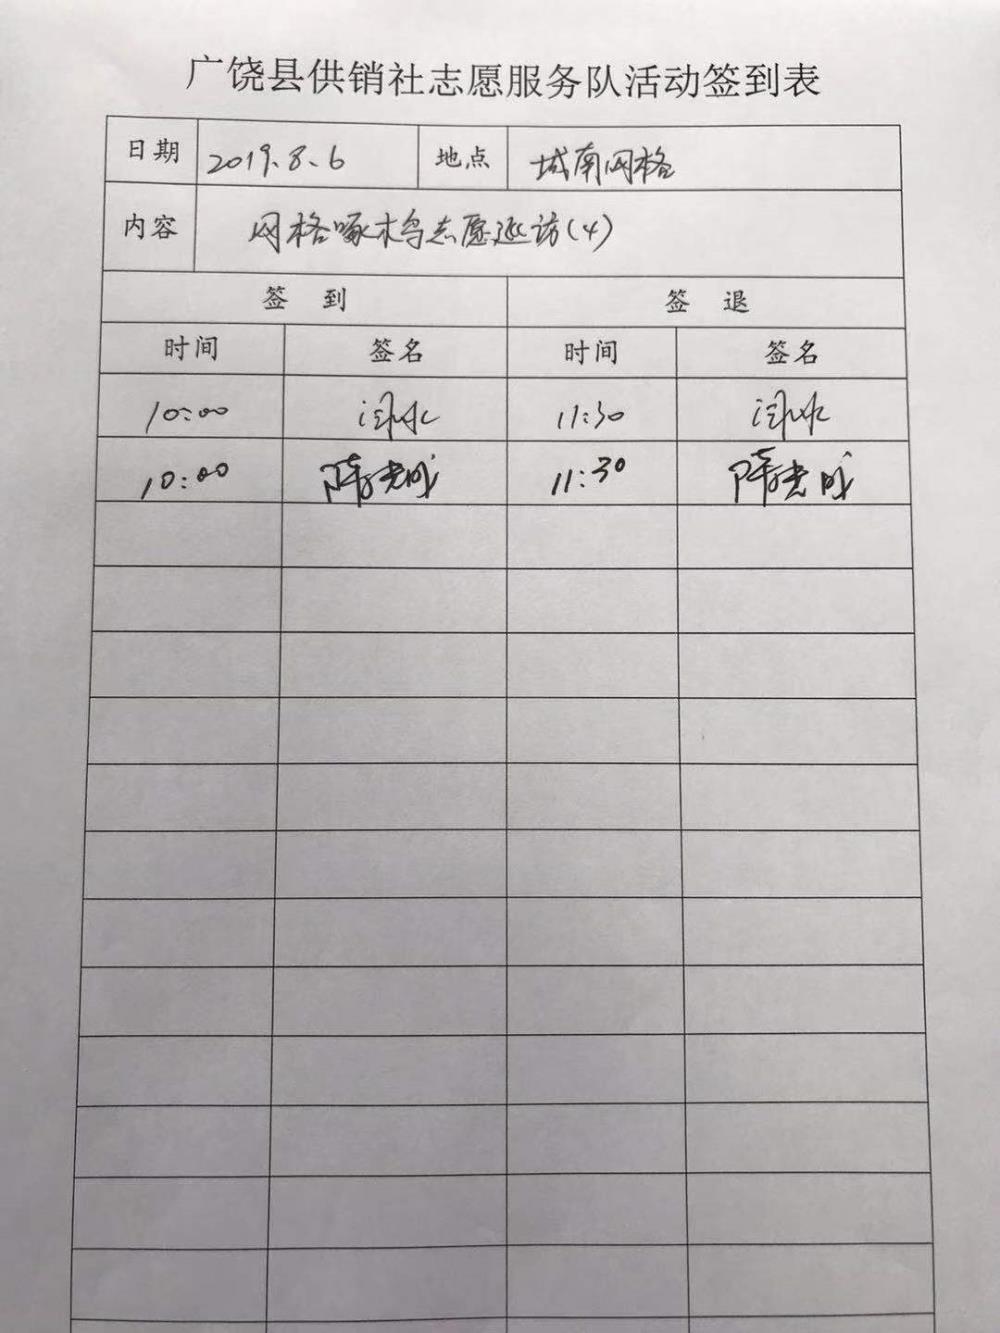 广饶县供销社志愿服务队活动签到表
日期 2019.8.6 地点 城南网格
内容 网格啄木鸟志愿巡访(4)
签 到 签 退
时间 签名 时间 签名
10:00 11:30
10:00 11:30